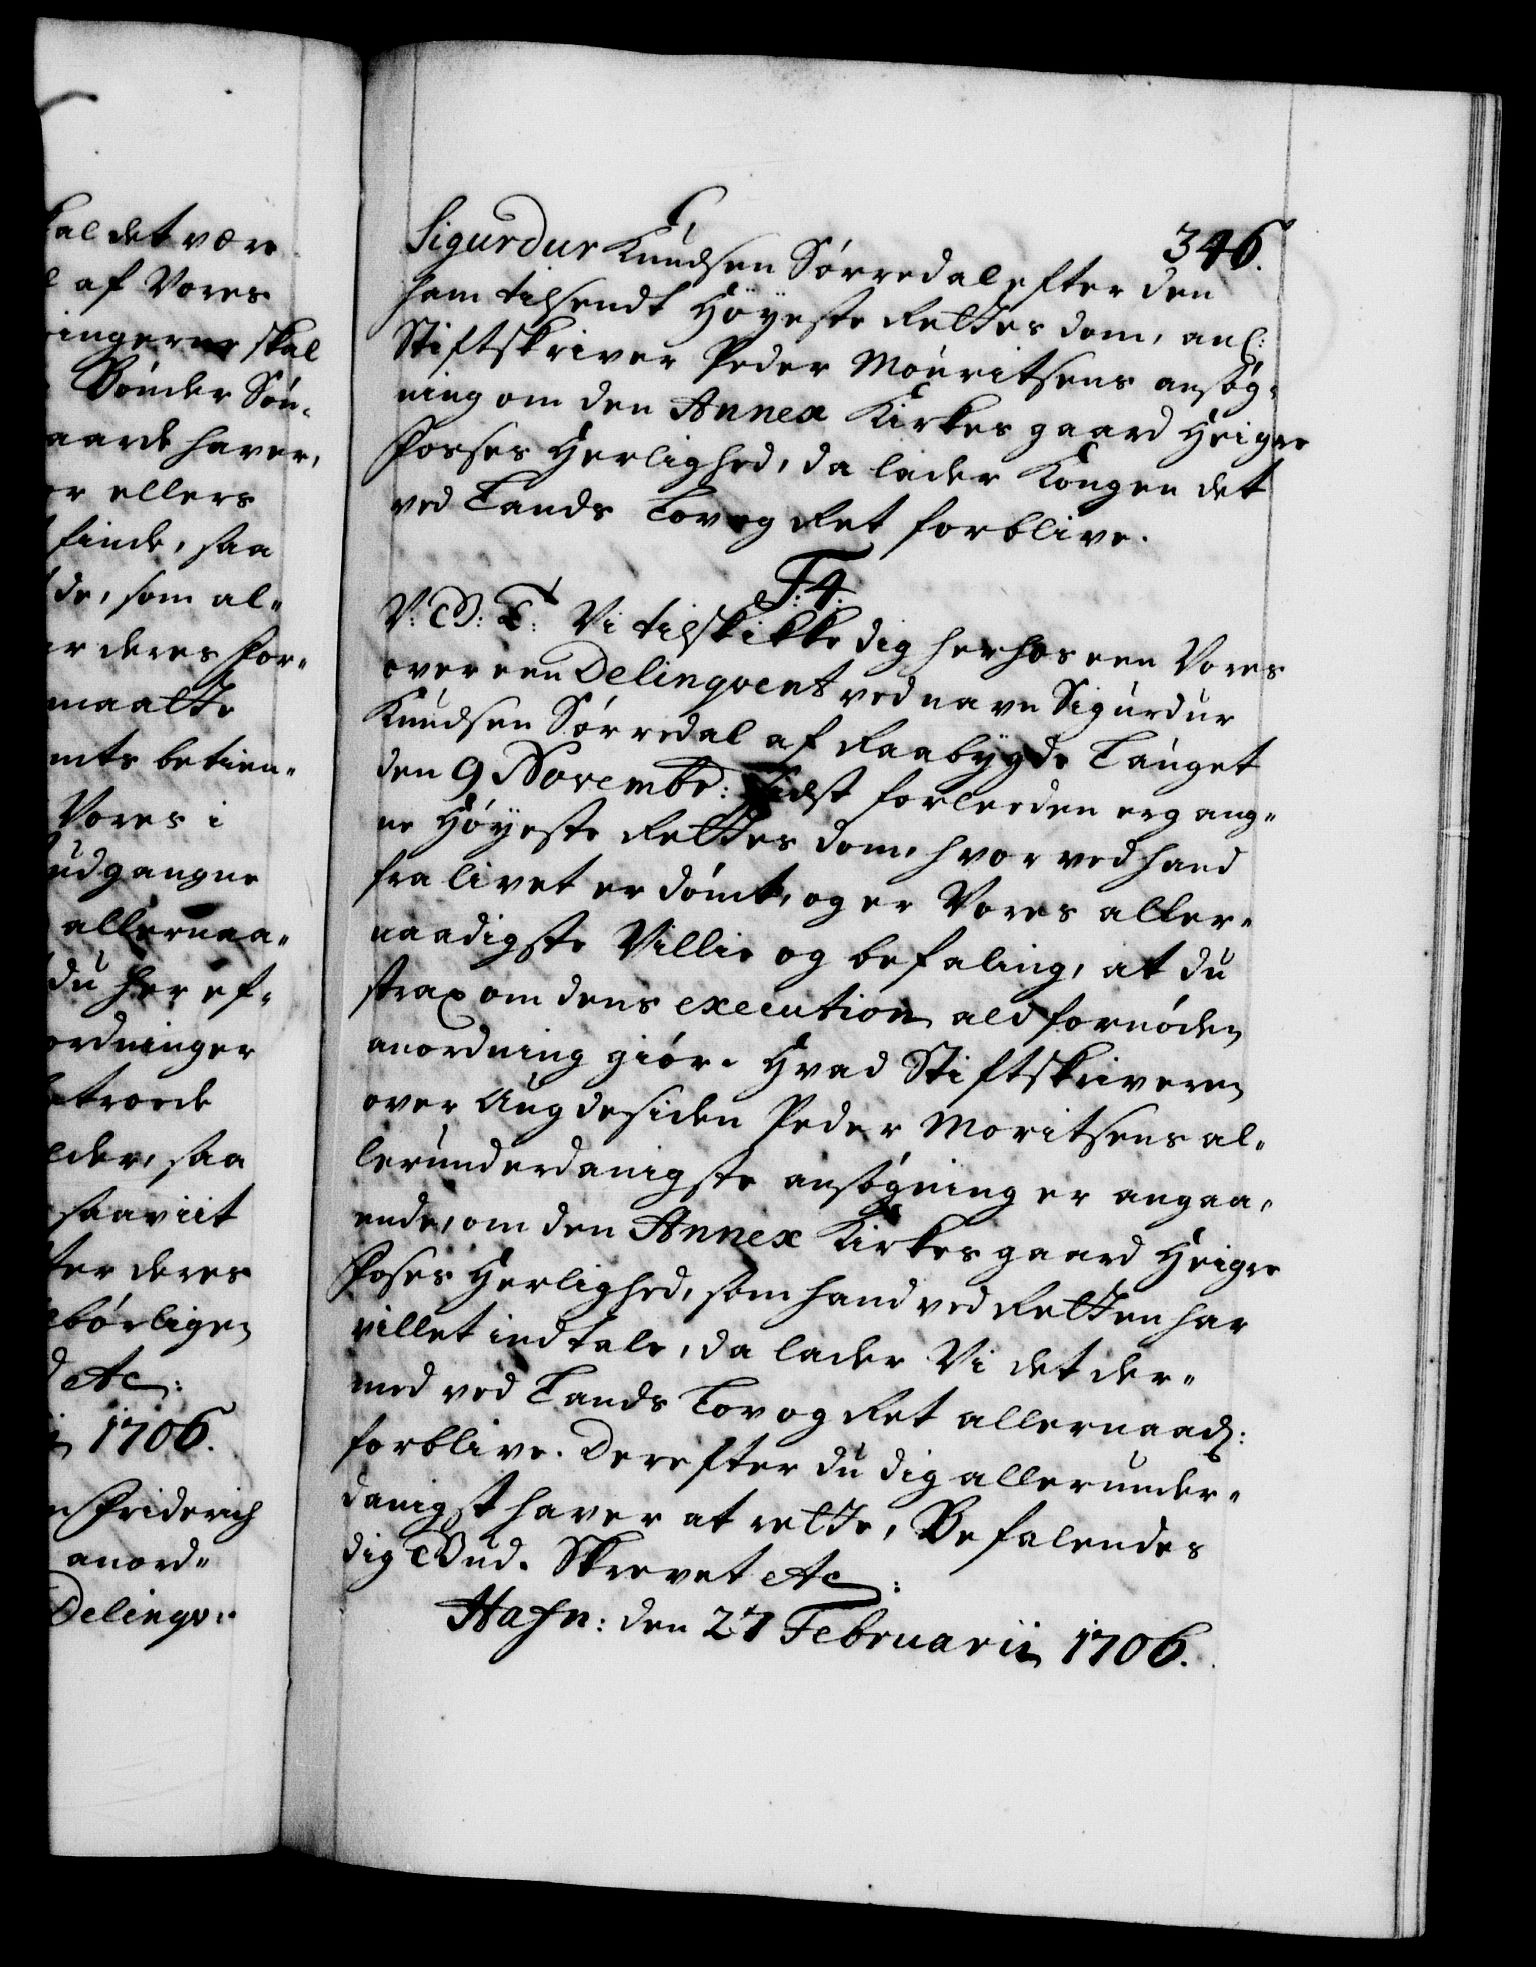 kal det være
l af Vores
ingerne skal
Bønder Søn-
aarde haver,
er ellers
finde, saa
de, som al-
er deres for-
maatte
mts betien-
Vores i
udgangne
allernaa-
du her ef-
ordninger
betroede
lder, saa
saaviit
ter deres
børligen
d etc:
1706.
n Friderich
anord-
Delinqv:
346.
Sigurdur Knudsen Sørredal efter den
ham tilsendt Høyeste Rettes dom, anl:
Stiftskriver Peder Mouritsens ansøg-
ning om den Annex Kirkes gaard Heigre
Fosses Herlighed, da lader Kongen det
ved Lands Lov og Ret forblive.
F: 4.
V: G: T: Vi tilskikke dig herhos een Vores
over een Delinqvent ved navn Sigurdur
Knudsen Sørredal af Raabygde Lauget
den 9 Novembr: sidst forleeden ergang-
ne Høyeste Rettes dom, hvorved hand
fra livet er dømt, og er Vores aller-
naadigste Villie og befaling, at du
strax om dens execution ald fornøden
anordning giør. Hvad Stiftskriveren
over Augdesiden Peder Moritsens al-
lerunderdanigste ansøgning er angaa-
ende, om den Annex Kirkes gaard Heigre
Foses Herlighed, som hand ved Retten har
villet indtale, da lader Vi det der-
med ved Lands Lov og Ret allernaad:
forblive. Derefter du dig allerunder-
danigst haver at rette, Befalendes
dig Gud. Skrevet etc:
Hafn: den 27 Februarii 1706.